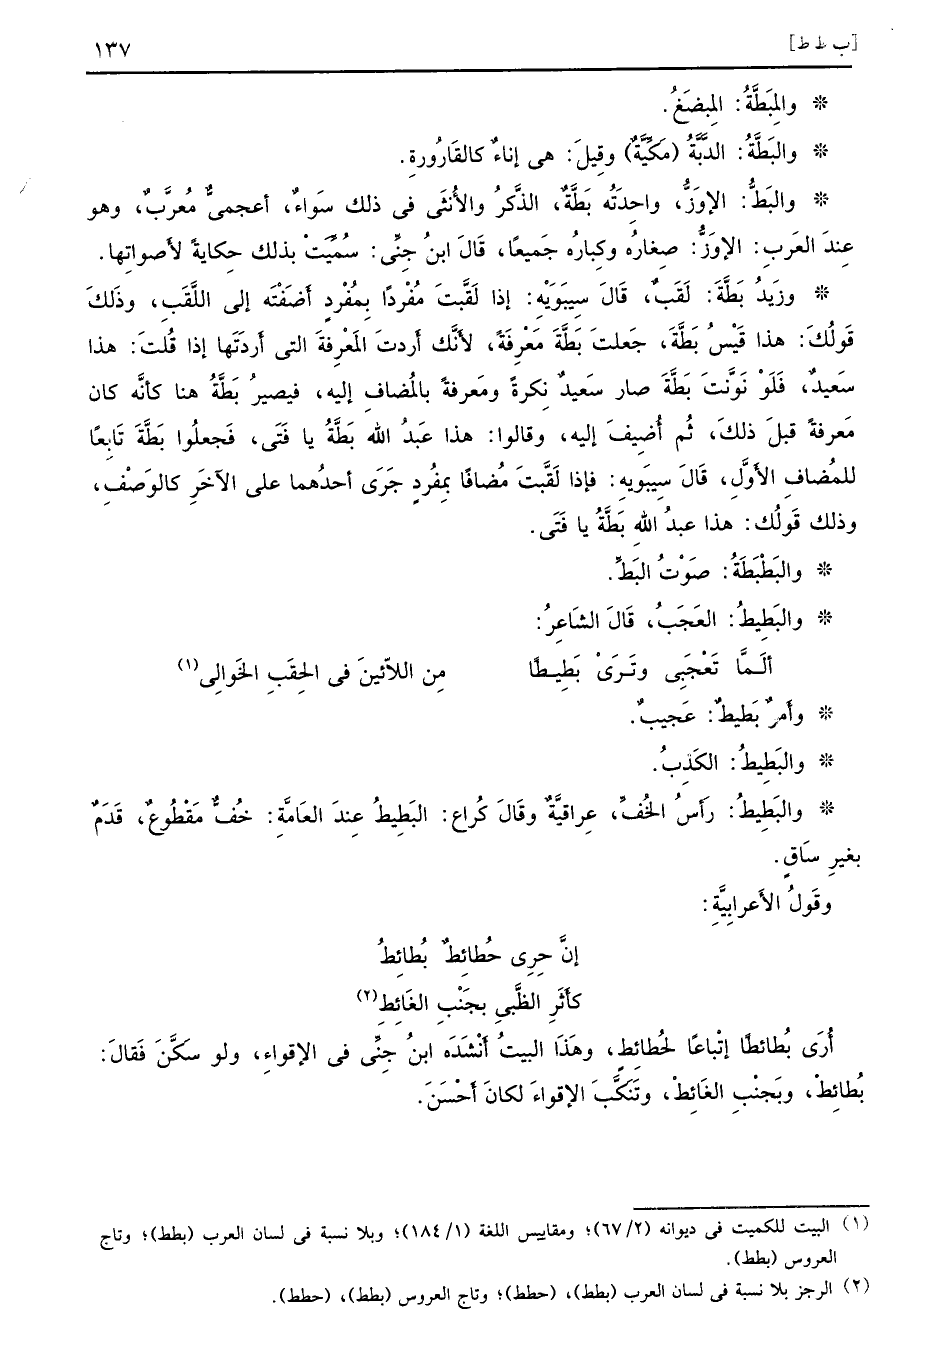 [ب ط ط] ١٣٧
* والمِبَطَّةُ: المِبضَعُ.
* والبَطَّةُ: الدَّبَّةُ (مَكِّيَّةٌ) وقيلَ: هى إناءٌ كالقَارُورةِ.
* والبَطُّ: الإوَزُّ، واحدَتُه بَطَّةٌ، الذَّكرُ والأُنثَى فى ذلك سَواءٌ، أعجمىٌّ مُعرَّبٌ، وهو
عندَ العَربِ: الإوَزُّ: صغارُه وكبارُه جَميعًا، قَالَ ابنُ جنِّى: سُمِّيَتْ بذلك حكايةً لأصواتها.
* وزَيدُ بَطَّةَ: لَقَبٌ، قَالَ سِيبَوَيْهِ: إذا لَقَّبتَ مُفْردًا بِمُفْردٍ أضَفْتَه إلى اللَّقَبِ، وذَلكَ
قَولُكَ: هذا قَيْسُ بَطَّةَ، جَعلتَ بَطَّةَ مَعْرِفَةً، لأنَّك أردتَ المَعْرِفةَ التى أردَتَها إذا قُلتَ: هذا
سَعيدٌ، فَلَوْ نَوَّنتَ بَطَّةَ صار سَعيدٌ نكرةً ومَعرفةً بالمُضافِ إليه، فيصيرُ بَطَّةُ هنا كأنَّه كان
مَعرفةً قبلَ ذلكَ، ثُم أُضيفَ إليه، وقالوا: هذا عَبدُ الله بَطَّةُ يا فَتَى، فَجعلُوا بَطَّةَ تَابعًا
للمُضافِ الأوَّلِ، قَالَ سِيبَويهِ: فإذا لَقَّبتَ مُضافًا بمُفردٍ جَرَى أحدُهما على الآخَرِ كالوَصْفِ،
وذلك قَولُك: هذا عبدُ اللهِ بَطَّةُ يا فَتَى.
* والبَطْبَطَةُ: صَوْتُ البَطِّ.
* والبَطِيطُ: العَجَبُ، قَالَ الشَاعرُ:
ألَـمَّا تَعْجَبِى وتَـرَىْ بَطِيـطًا مِن اللاّئينَ فى الحِقَبِ الخَوالِى(١)
* وأمرٌ بَطيطٌ: عَجيبٌ.
* والبَطِيطُ: الكَذبُ.
* والبَطِيطُ: رَأسُ الخُفِّ، عراقيَّةٌ وقَالَ كُراع: البَطيطُ عندَ العَامَّةِ: خُفٌّ مَقْطُوعٌ، قَدَمٌ
بغيرِ سَاقٍ.
وقَولُ الأعرابيَّةِ:
إنَّ حِرِى حُطائطٌ بُطائطُ
كأثَرِ الظَّبىِ بجَنْبِ الغَائطِ(٢)
أُرَى بُطائطًا إتْباعًا لحُطائطٍ، وهَذَا البيتُ أنْشَدَه ابنُ جنِّى فى الإقواءِ، ولو سَكَّنَ فَقالَ:
بُطائِطْ، وبَجنْبِ الغَائطْ، وتَنَكَّبَ الإقواءَ لكانَ أحْسَنَ.
(١) البيت للكميت فى ديوانه (٦٧/٢)؛ ومقاييس اللغة (١٨٤/١)؛ وبلا نسبة فى لسان العرب (بطط)؛ وتاج
العروس (بطط).
(٢) الرجز بلا نسبة فى لسان العرب (بطط)، (حطط)؛ وتاج العروس (بطط)، (حطط).